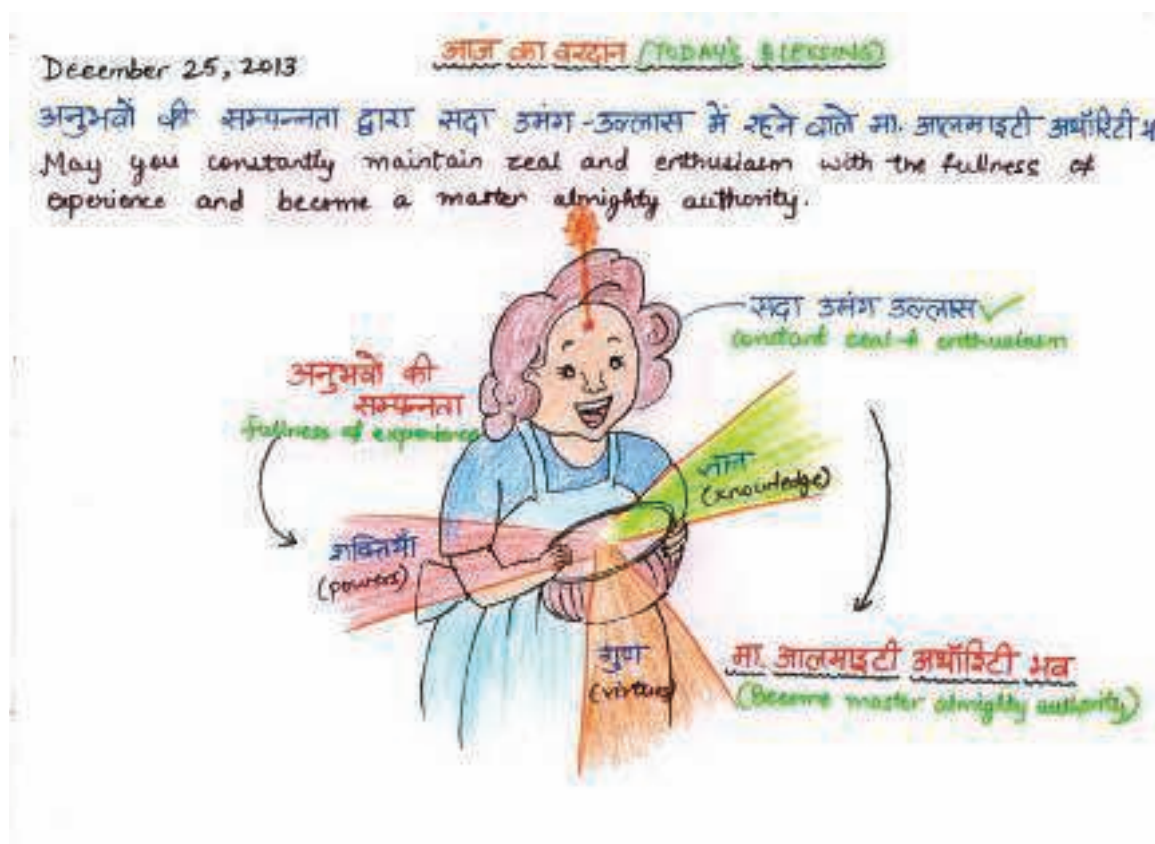 आज का वरदान (TODAY'S BLESSING)
December 25, 2013
अनुभवों की सम्पन्नता द्वारा सदा उमंग-उल्लास में रहने वाले मा. आलमाइटी अथॉरिटी
May you constantly maintain zeal and enthusiasm with the fullness of
experience and become a master almighty authority.
सदा उमंग उल्लास
constant zeal & enthusiasm
अनुभवों की
सम्पन्नता
fullness of experience
ज्ञान
(knowledge)
शक्तियाँ
(powers)
गुण
(virtues)
मा. आलमाइटी अथॉरिटी भव
(Become master almighty authority)